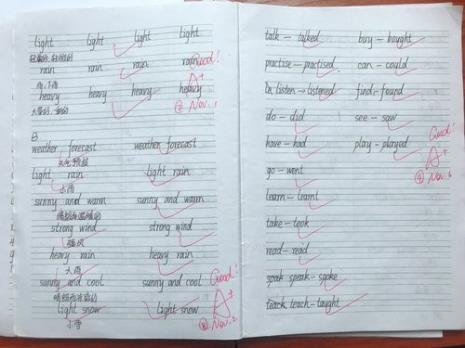 light light light light
rain rain rain rain
heavy heavy heavy heavy
Good!
A+
Nov. 1
B
weather forecast weather forecast
天气预报
light rain light rain
小雨
sunny and warm sunny and warm
strong wind strong wind
强风
heavy rain heavy rain
大雨
sunny and cool sunny and cool
light snow light snow
小雪
Good!
A+
Nov. 2
talk - talked buy - bought
practise - practised can - could
listen - listened find - found
do - did see - saw
have - had play - played
go - went
learn - learnt
take - took
read - read
speak speak - spoke
teach teach - taught
Good!
A+